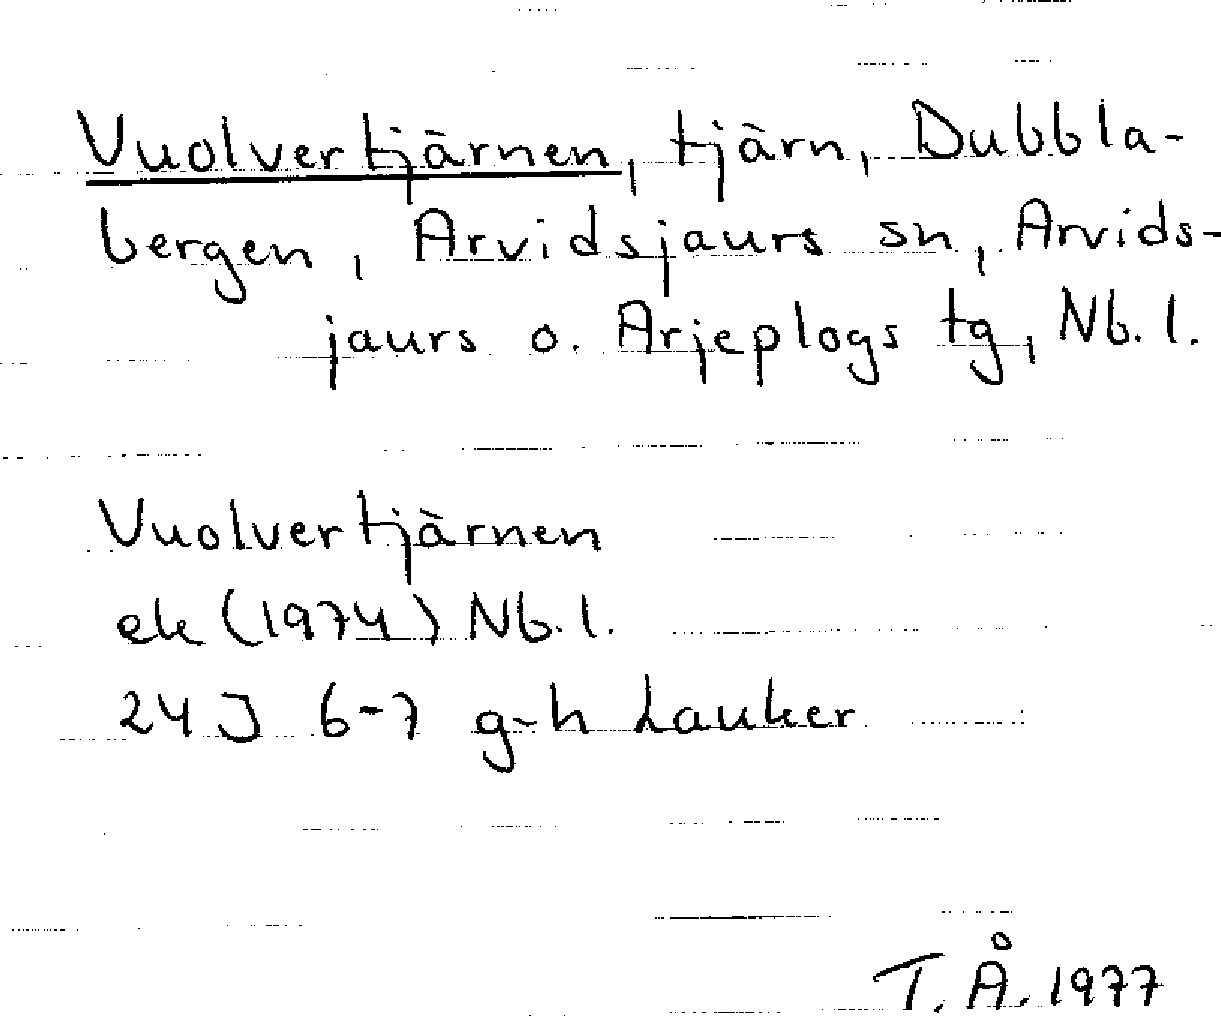 Vuolvertjärnen, tjärn, Dubbla-
bergen, Arvidsjaurs sn, Arvids-
jaurs o. Arjeplogs tg, Nb. l.
Vuolvertjärnen
ek (1974) Nb. l.
24 J 6-7 g-h Lauker
T. Å. 1977